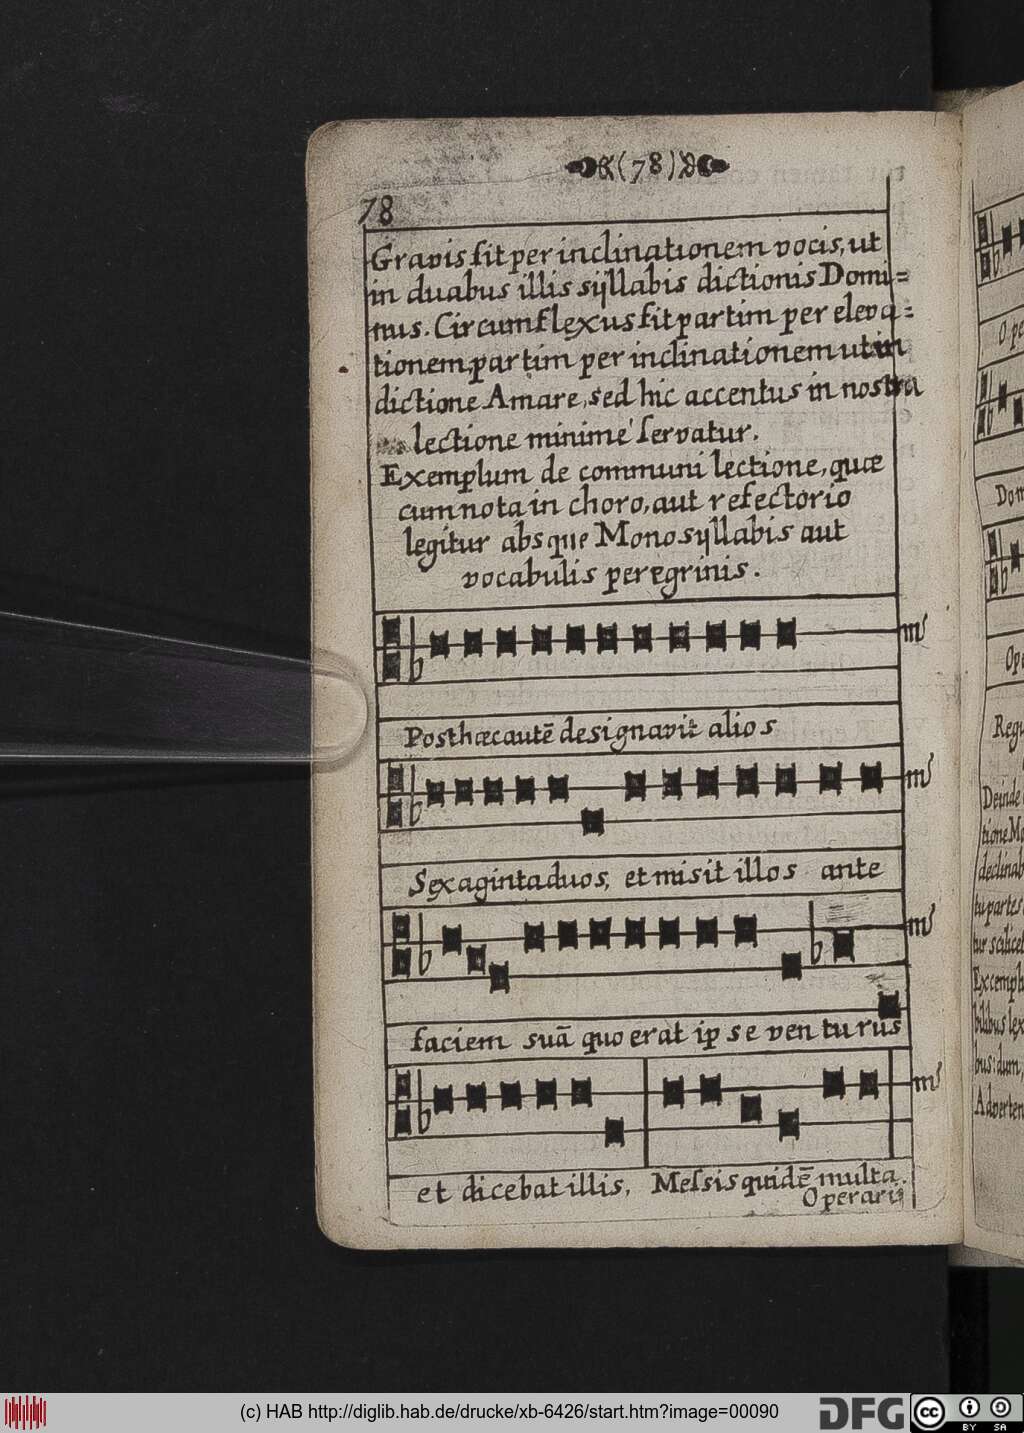 (78)
78
Gravis fit per inclinationem vocis, ut
in duabus illis syllabis dictionis Domi=
nus. Circumflexus fit partim per eleva=
tionem, partim per inclinationem ut in
dictione Amare, sed hic accentus in nostra
lectione minime servatur.
Exemplum de communi lectione, quæ
cum nota in choro, aut refectorio
legitur absque Monosyllabis aut
vocabulis peregrinis.
Posthæc autē designavit alios
Sexaginta duos, et misit illos ante
faciem suā quo erat ipse venturus
et dicebat illis, Messis quidē multa.
Operarii
Ope
Dom
Ope
Regu
Deinde
tione Mo
declinab
tu partes
tur scilicet
Exempl
bilibus lex
bus: dum,
Adverten
(c) HAB http://diglib.hab.de/drucke/xb-6426/start.htm?image=00090
DFG
cc
BY SA